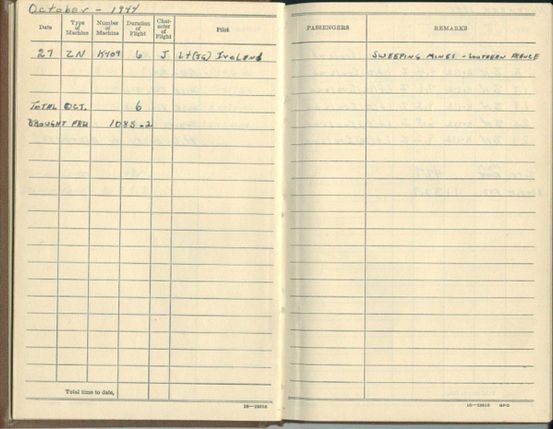 October - 1944
Date Type of Machine Number of Machine Duration of Flight Character of Flight Pilot PASSENGERS REMARKS
27 ZN K109 6 J Lt(JG) Ireland SWEEPING MINES - SOUTHERN FRANCE
TOTAL OCT. 6
BROUGHT FWD 1085.2
Total time to date,
GPO